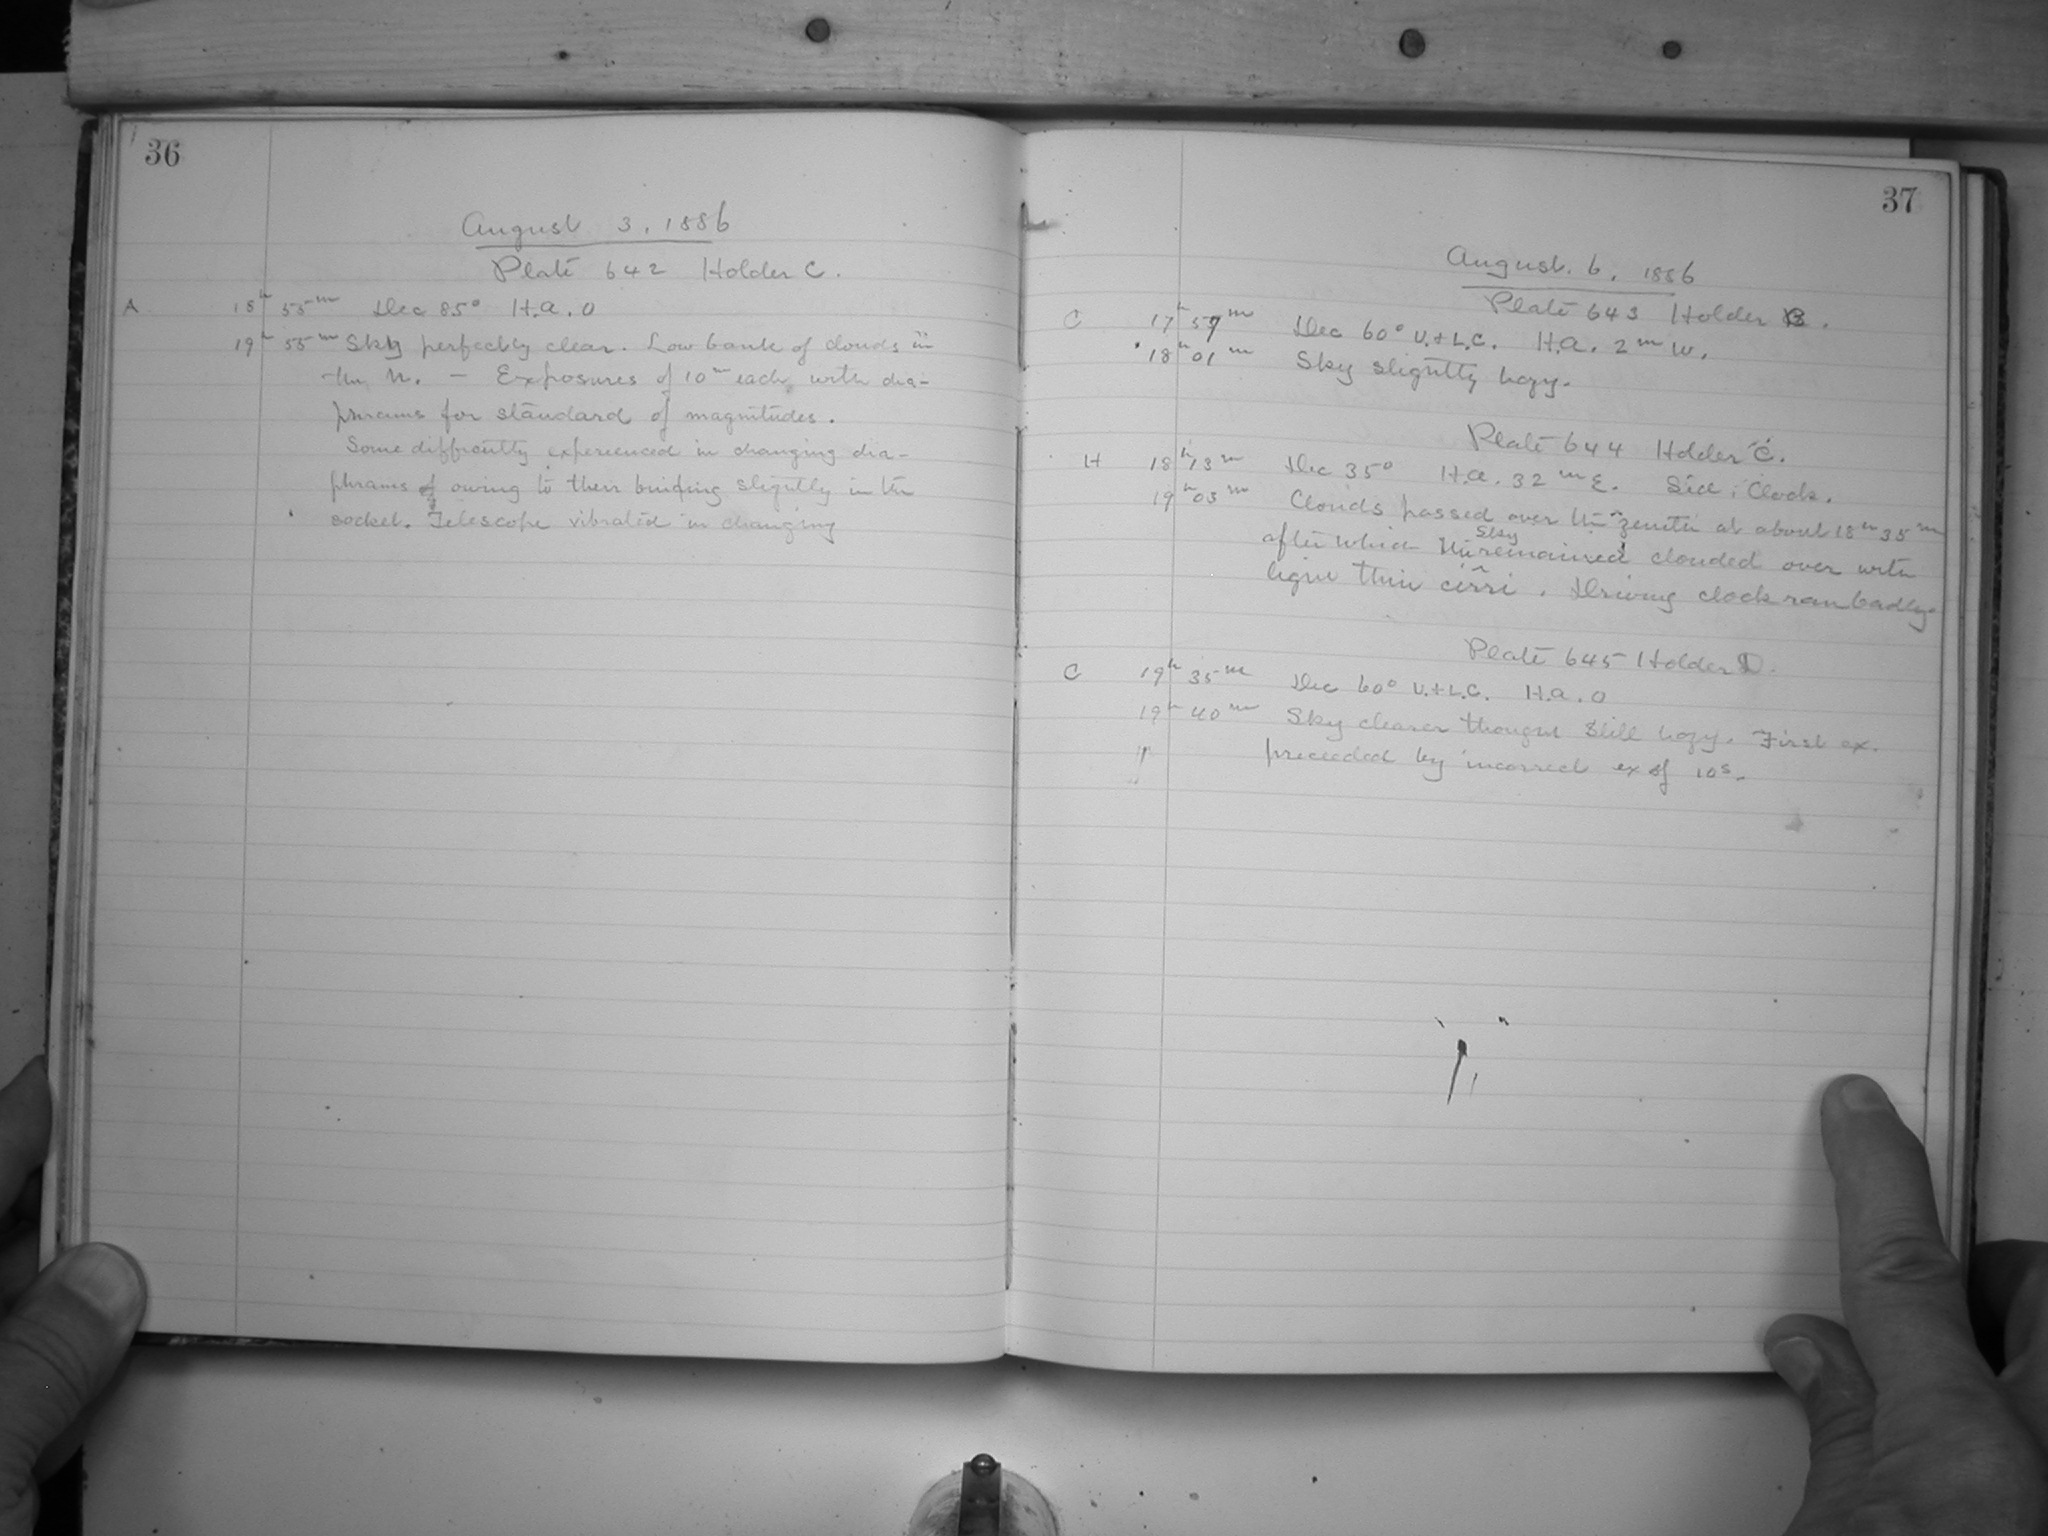 36
August 3, 1886
Plate 642 Holder C.
A 18h 55m Dec 85° H.a. 0
19h 55m Sky perfectly clear. Low bank of clouds in
the N. — Exposures of 10m each with dia-
phrams for standard of magnitudes.
Some difficultly experienced in changing dia-
phrams owing to their binding slightly in the
socket. Telescope vibrated in changing
37
August. 6, 1886
Plate 643 Holder B.
C 17h 57m Dec 60° U.+L.C. H.a. 2m W.
18h 01m Sky slightly hazy.
Plate 644 Holder C.
H 18h 13m Dec 35° H.a. 32m E. Sid. Clock.
19h 03m Clouds passed over the zenith at about 18h 35m
after which the sky remained clouded over with
light thin cirri. Driving clock ran badly.
Plate 645 Holder D.
C 19h 35m Dec 60° U.+L.C. H.a. 0
19h 40m Sky clearer though still hazy. First ex.
preceeded by incorrect ex of 10s.